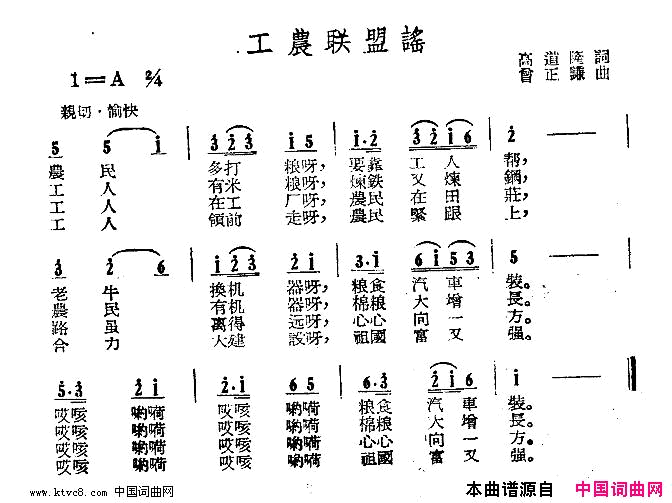 工農联盟謠
高道隆詞
1=A 2/4
曾正謙曲
親切·愉快
5 5 i 3 2 3 i 5 i·2 3 2 i 6 2 —
農民多打粮呀，要靠工人帮，
工人有米粮呀，煉鉄又煉鋼，
工人在工厂呀，農民在田莊，
工人領前走呀，農民緊跟上，
3 2 6 i 2 3 2 i 3·i 6 i 5 3 5 —
老牛換机器呀，粮食汽車裝。
農民有机器呀，棉粮大增長。
路虽离得远呀，心心向一方。
合力大建設呀，祖國富又强。
5·3 2 i 2·i 6 5 6·3 2 i 6 i —
哎咳喲嗬哎咳喲嗬粮食汽車裝。
哎咳喲嗬哎咳喲嗬棉粮大增長。
哎咳喲嗬哎咳喲嗬心心向一方。
哎咳喲嗬哎咳喲嗬祖國富又强。
www.ktvc8.com 中国词曲网
本曲谱源自 中国词曲网